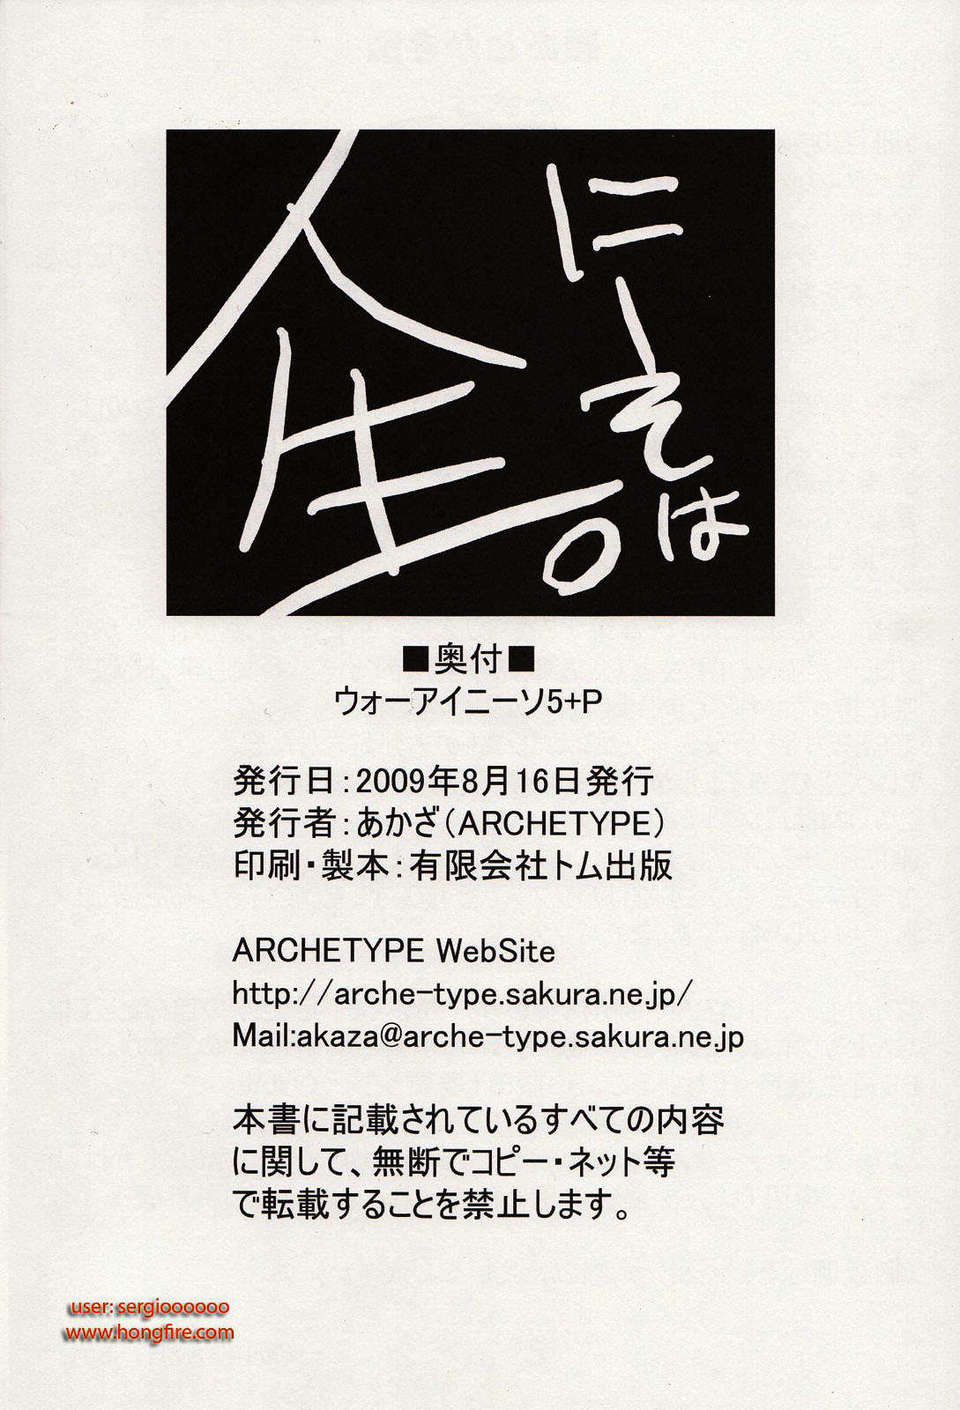 にーそは
人生。
■奥付■
ウォーアイニーソ5+P
発行日：2009年8月16日発行
発行者：あかざ（ARCHETYPE）
印刷・製本：有限会社トム出版
ARCHETYPE WebSite
http://arche-type.sakura.ne.jp/
Mail:akaza@arche-type.sakura.ne.jp
本書に記載されているすべての内容
に関して、無断でコピー・ネット等
で転載することを禁止します。
user: sergioooooo
www.hongfire.com